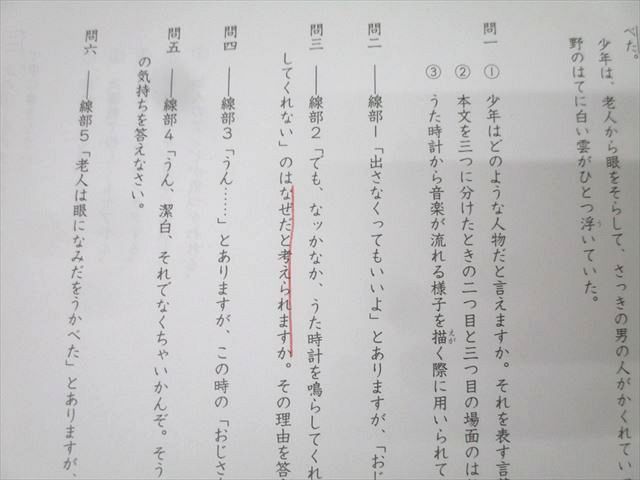 べた。
少年は、老人から眼をそらして、さっきの男の人がかくれてい
野のはてに白い雲がひとつ浮いていた。
う
問一 ① 少年はどのような人物だと言えますか。それを表す言
② 本文を三つに分けたときの二つ目と三つ目の場面のは
③ うた時計から音楽が流れる様子を描く際に用いられて
えが
問二 ――線部1「出さなくってもいいよ」とありますが、「おじ
問三 ――線部2「でも、なッかなか、うた時計を鳴らしてくれ
してくれない」のはなぜだと考えられますか。その理由を答
問四 ――線部3「うん……」とありますが、この時の「おじさ
問五 ――線部4「うん、潔白、それでなくちゃいかんぞ。そう
の気持ちを答えなさい。
問六 ――線部5「老人は眼になみだをうかべた」とありますが、